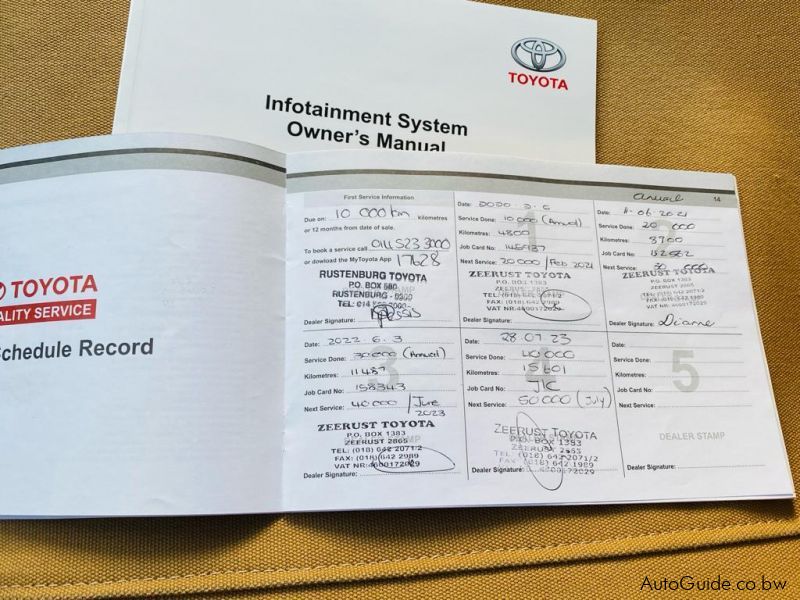 TOYOTA
Infotainment System
Owner's Manual
TOYOTA
ALITY SERVICE
Schedule Record
Annual
14
First Service Information
Due on: 10 000 km kilometres
or 12 months from date of sale.
To book a service call 0114 523 3000
or dowload the MyToyota App 17628
RUSTENBURG TOYOTA
P.O. BOX 580
RUSTENBURG - 0300
Dealer Signature:
Date: 2020. 2. 6
Service Done: 10 000 (Annual)
Kilometres: 4800
Job Card No:
Next Service: 20 000 / Feb 2021
ZEERUST TOYOTA
P.O. BOX 1383
ZEERUST 2865
TEL: (018) 642 2071/2
FAX: (018) 642 2989
VAT NR:4600172029
Dealer Signature:
Date: 11.06.2021
Service Done: 20 000
Kilometres: 8700
Job Card No:
Next Service: 30 000
ZEERUST TOYOTA
P.O. BOX 1383
ZEERUST 2865
Dealer Signature: Dianne
Date: 2022. 6. 3
Service Done: 30 000 (Annual)
Kilometres: 11 487
Job Card No: 158343
Next Service: 40 000 / June 2023
3
ZEERUST TOYOTA
P.O. BOX 1383
ZEERUST 2865
TEL: (018) 642 2071/2
FAX: (018) 642 2989
VAT NR:4600172029
Dealer Signature:
Date: 28.07.23
Service Done: 40 000
Kilometres: 15 601
Job Card No: JIC
Next Service: 50 000 (July)
ZEERUST TOYOTA
P.O. BOX 1383
ZEERUST 2865
TEL: (018) 642 2071/2
FAX: (018) 642 1989
VAT NR:4600172029
Dealer Signature:
Date:
Service Done:
Kilometres:
Job Card No:
Next Service:
5
DEALER STAMP
Dealer Signature:
AutoGuide.co.bw